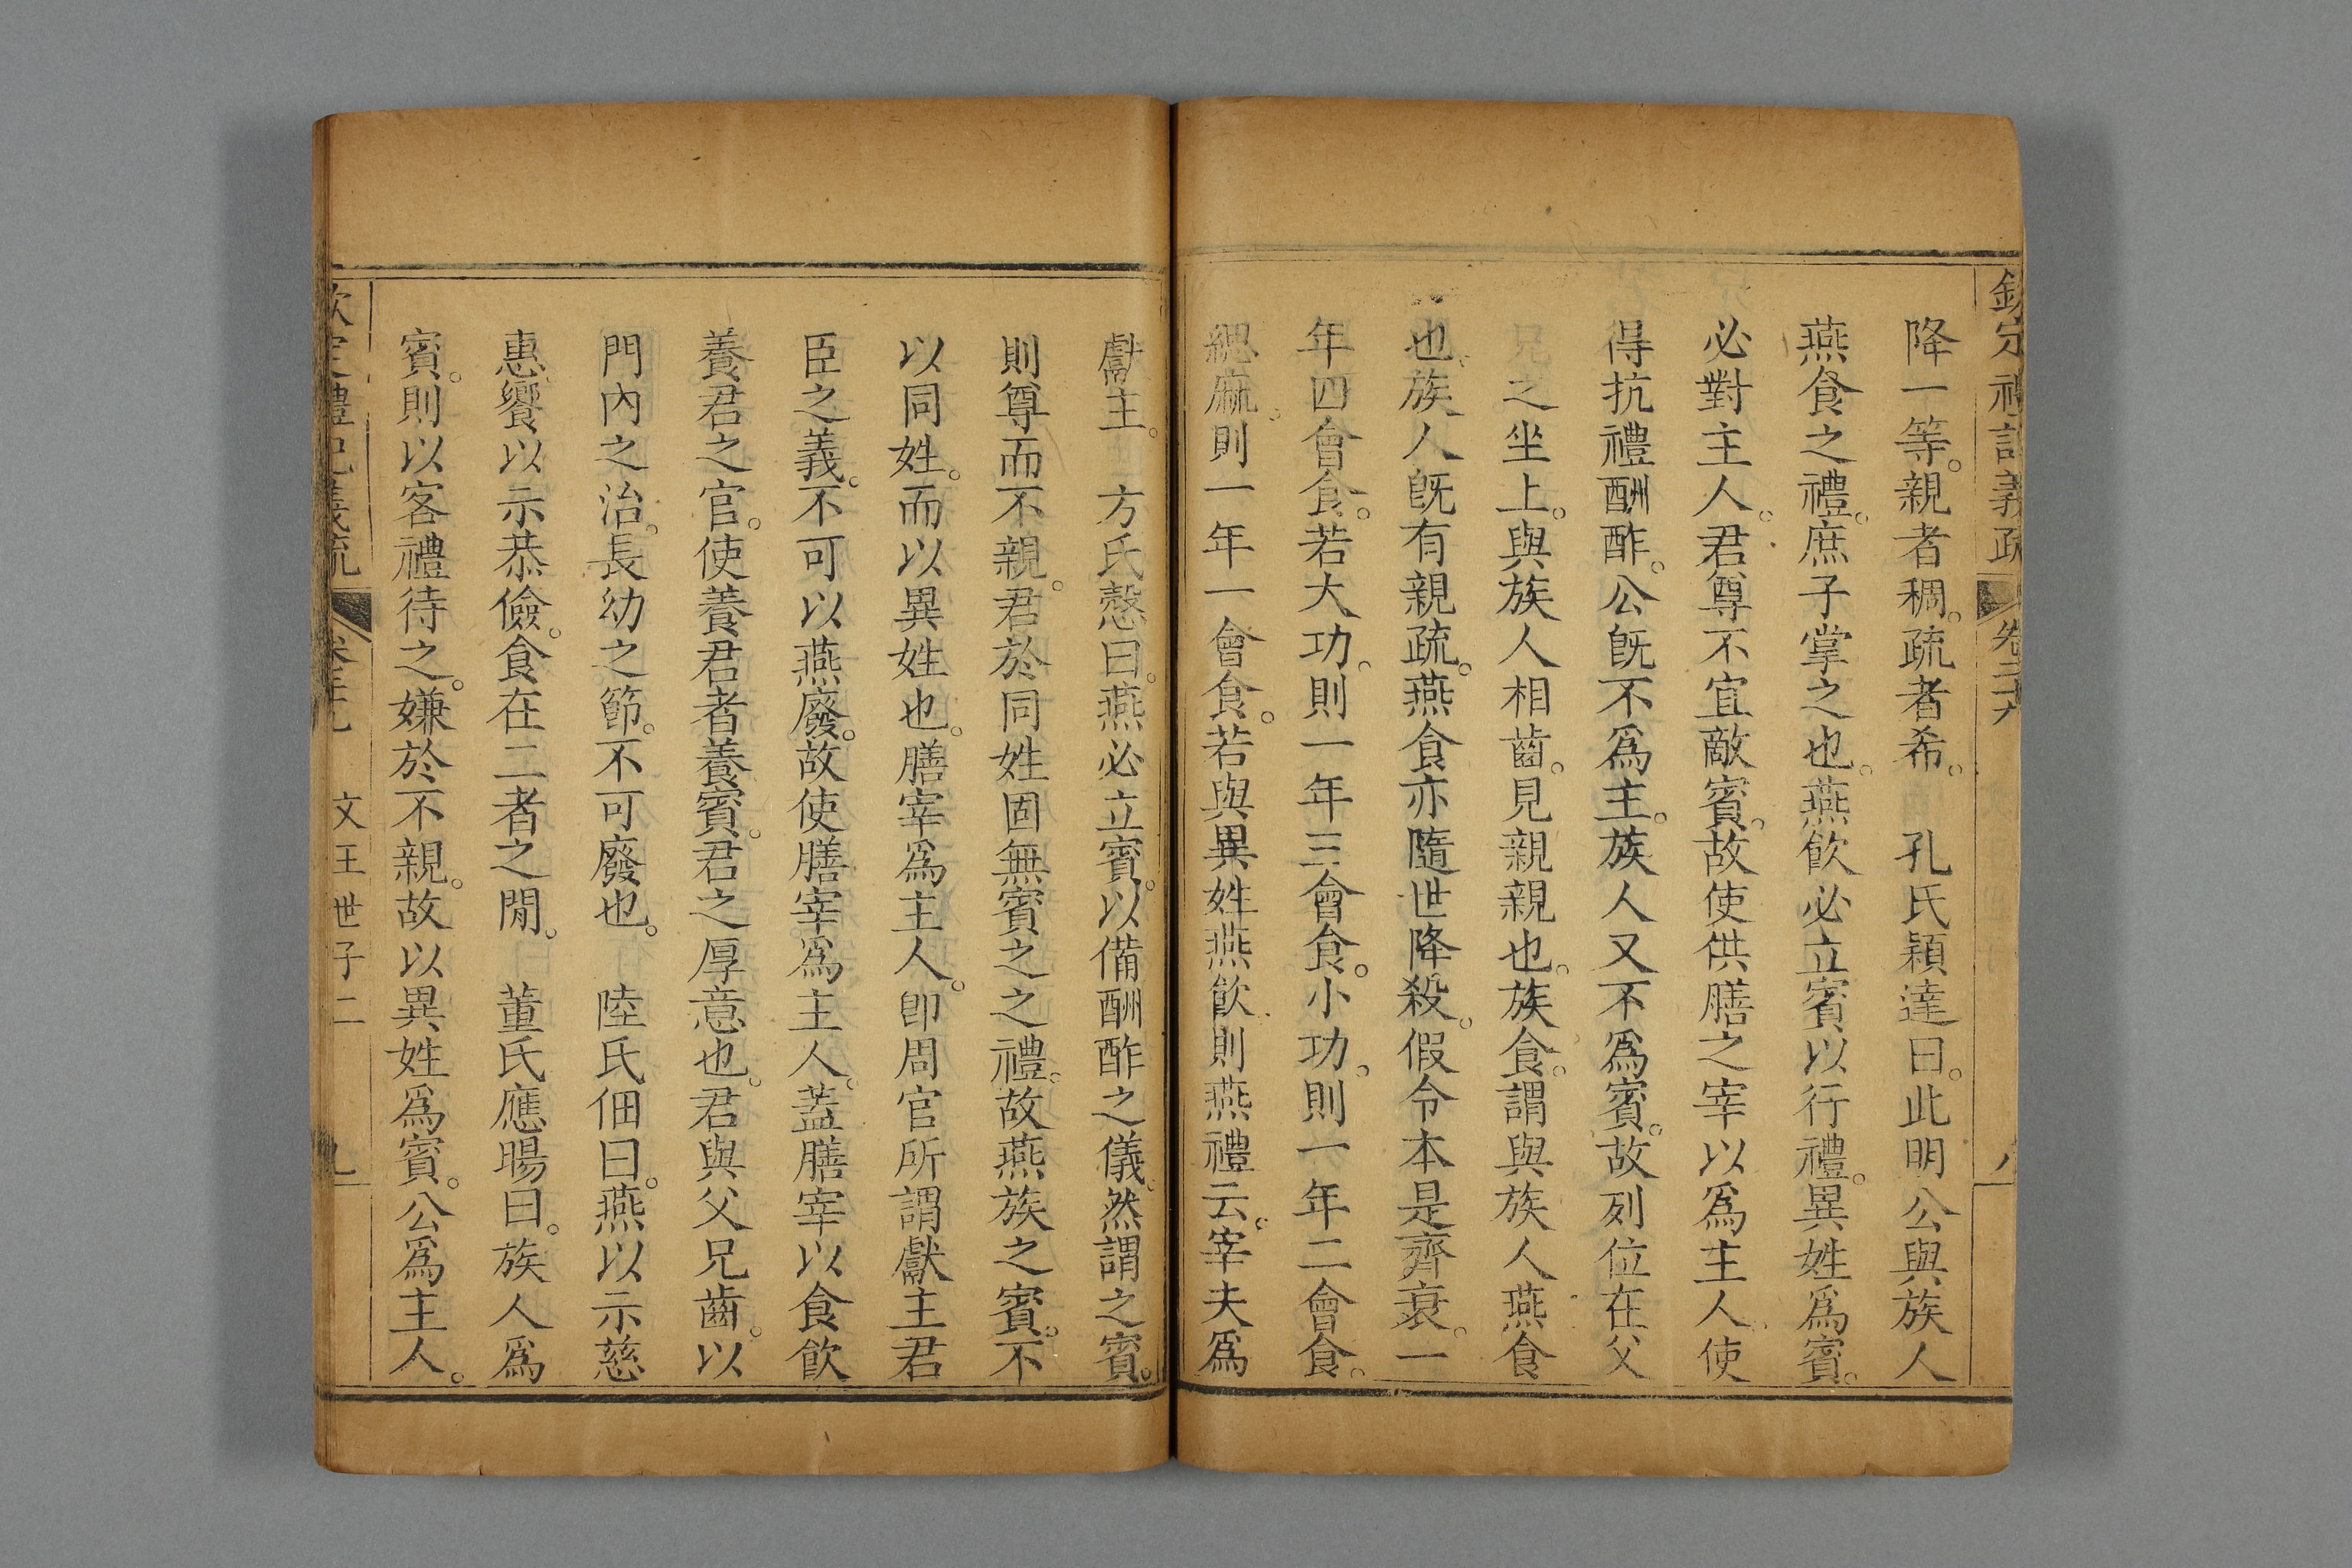 降一等。親者稠。疏者希。　孔氏穎達曰。此明公與族人
燕食之禮。庶子掌之也。燕飮必立賓以行禮。異姓爲賓。
必對主人。君尊不宜敵賓。故使供膳之宰以爲主人使
得抗禮酬酢。公旣不爲主。族人又不爲賓。故列位在父
兄之坐上。與族人相齒。見親親也。族食。謂與族人燕食
也。族人旣有親疏。燕食亦隨世降殺。假令本是齊衰。一
年四會食。若大功。則一年三會食。小功。則一年二會食。
緦麻。則一年一會食。若與異姓燕飮。則燕禮云。宰夫爲
獻主。　方氏慤曰。燕必立賓。以備酬酢之儀。然謂之賓。
則尊而不親。君於同姓固無賓之之禮。故燕族之賓。不
以同姓。而以異姓也。膳宰爲主人。卽周官所謂獻主君
臣之義。不可以燕廢。故使膳宰爲主人。蓋膳宰以食飮
養君之官。使養君者養賓。君之厚意也。君與父兄齒。以
門內之治。長幼之節。不可廢也。　陸氏佃曰。燕以示慈
惠。饗以示恭儉。食在二者之閒。　董氏應暘曰。族人爲
賓。則以客禮待之。嫌於不親。故以異姓爲賓。公爲主人。
欽定禮記義疏
文王世子二